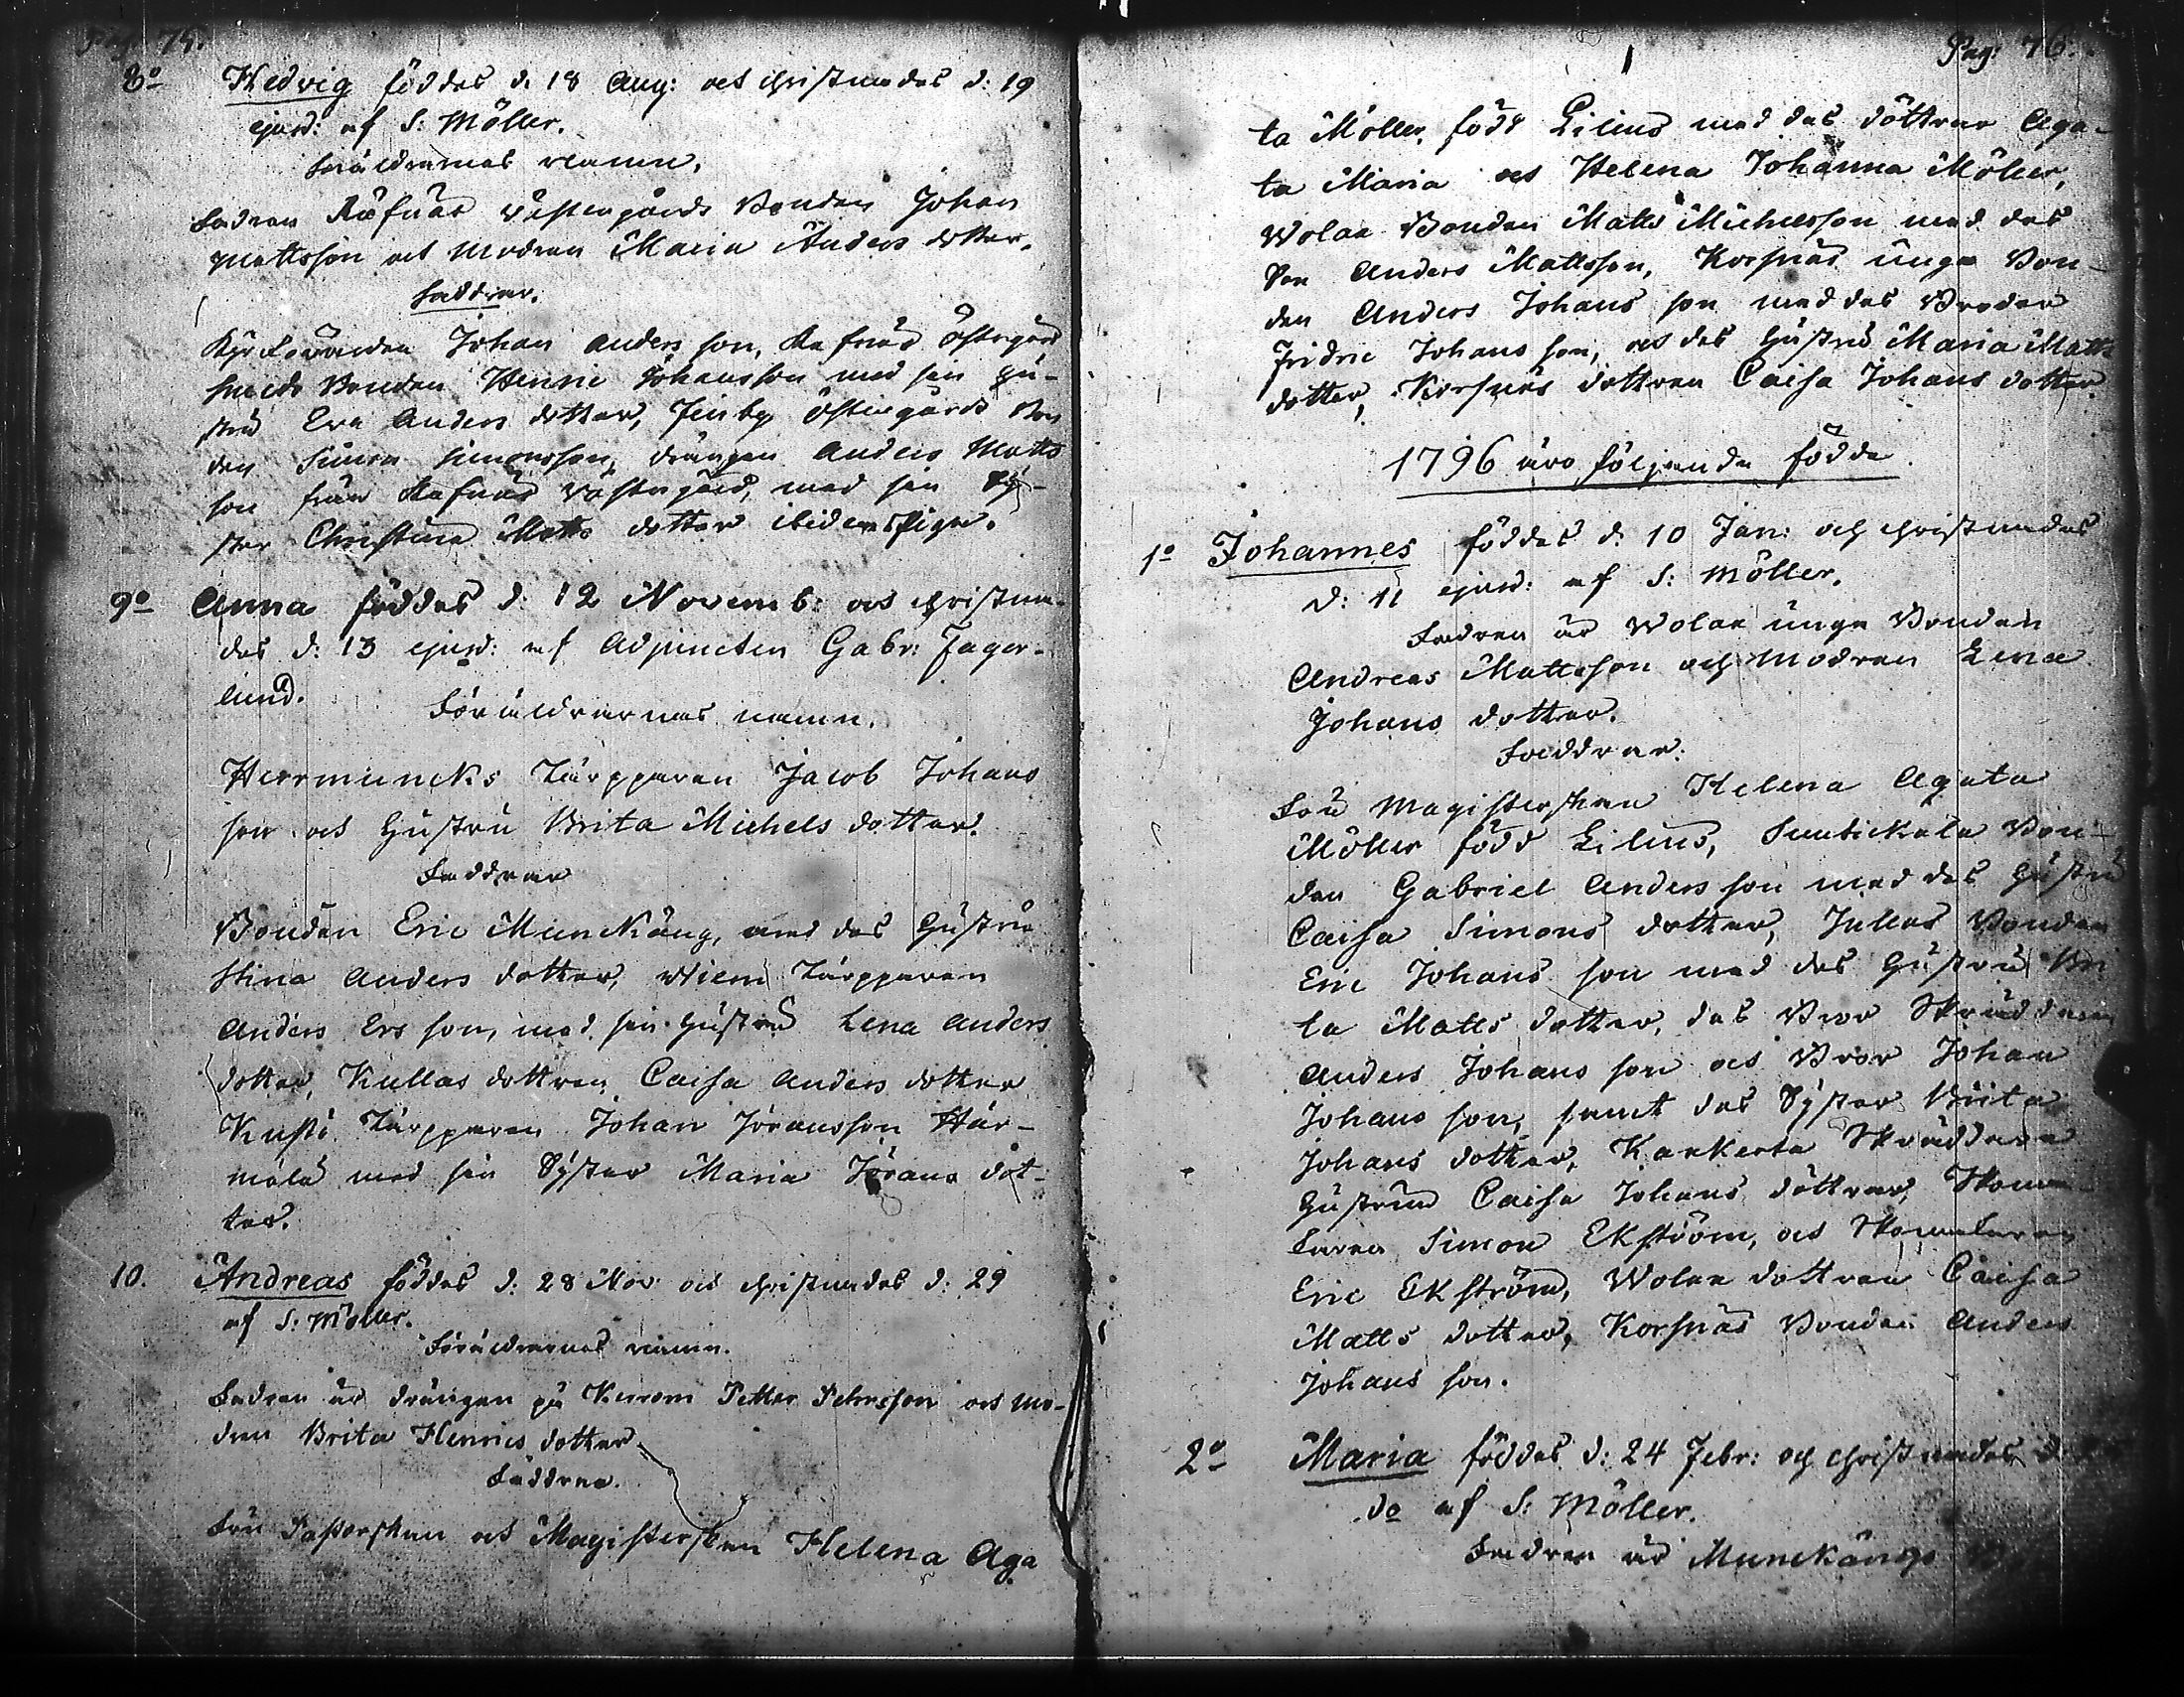 Pag: 75.
8o Hedvig föddes d: 18 Aug: och christnades d: 19
ejusd: af S: Möller.
Föräldrarnas namn.
Fadren Räfnäs Västergårds Bonden Johan
Mattsson och Modren Maria Anders dotter.
Faddrar.
Johan Anders son, Räfnäs Östergårds
Bonden Henric Johansson med sin Hu-
stru Eva Anders dotter, Finby Östergårds Bon
den Simon Simonsson, drängen Anders Matts
son från Räfnäs Västergård, med sin Sy-
ster Christina Matts dotter ibidem Pigan.
9o Anna föddes d: 12 Novemb: och christna-
des d: 13 ejusd: af Adjuncten Gabr: Fager-
lund.
Föräldrarnas namn.
Herrmuncks Torpparen Jacob Johans
son och Hustru Brita Michels dotter.
Faddrar
Bonden Eric Munckäng, med des Hustru
Stina Anders dotter, Torpparen
Anders Ers son, med sin Hustru Lena Anders
dotter, Kullas dottren Caisa Anders dotter
Torpparen Johan Jöransson Här-
mälä med sin Syster Maria Jörans dot-
ter.
10. Andreas föddes d: 28 Nov: och christnades d: 29
af S: Möller.
Föräldrarnas namn.
Fadren är drängen på Petter Pehrsson och Mo-
dren Brita Henrics dotter
Faddrar.
Fru Pastorskan och Magisterskan Helena Aga
Pag: 76.
ta Möller, född Lilius med des döttrar Aga-
ta Maria och Helena Johanna Möller,
Wolax Bonden Matts Michelsson med des
Son Anders Mattsson, Korsnäs unga Bon-
den Anders Johans son med des Broder
Fridric Johans son, och des Hustru Maria Matts
dotter, Korsnäs dottren Caisa Johans dotter
1796 äro följande födde.
1o Johannes föddes d: 10 Jan: och christnades
d: 11 ejusd: af S: Möller.
Fadren är Wolax unga Bonden
Andreas Mattsson och Modren Lena
Johans dotter.
Faddrar:
Fru Magisterskan Helena Agata
Möller född Lilius, Bon-
den Gabriel Anders son med des Hustru
Caisa Simons dotter, Jullas Bonden
Eric Johans son med des Hustru Bri
ta Matts dotter, des Bror Skräddaren
Anders Johans son och Bror Johan
Johans son, samt des Syster Brita
Johans dotter, Kankerta Skräddare
Hustrun Caisa Johans dotter, Skoma-
karen Simon Ekström, och Skomakaren
Eric Ekström, Wolax dottren Caisa
Matts dotter, Korsnäs Bonden Anders
Johans son.
2o Maria föddes d: 24 Febr: och christnades d
do af S: Möller.
Fadren är Munckängs